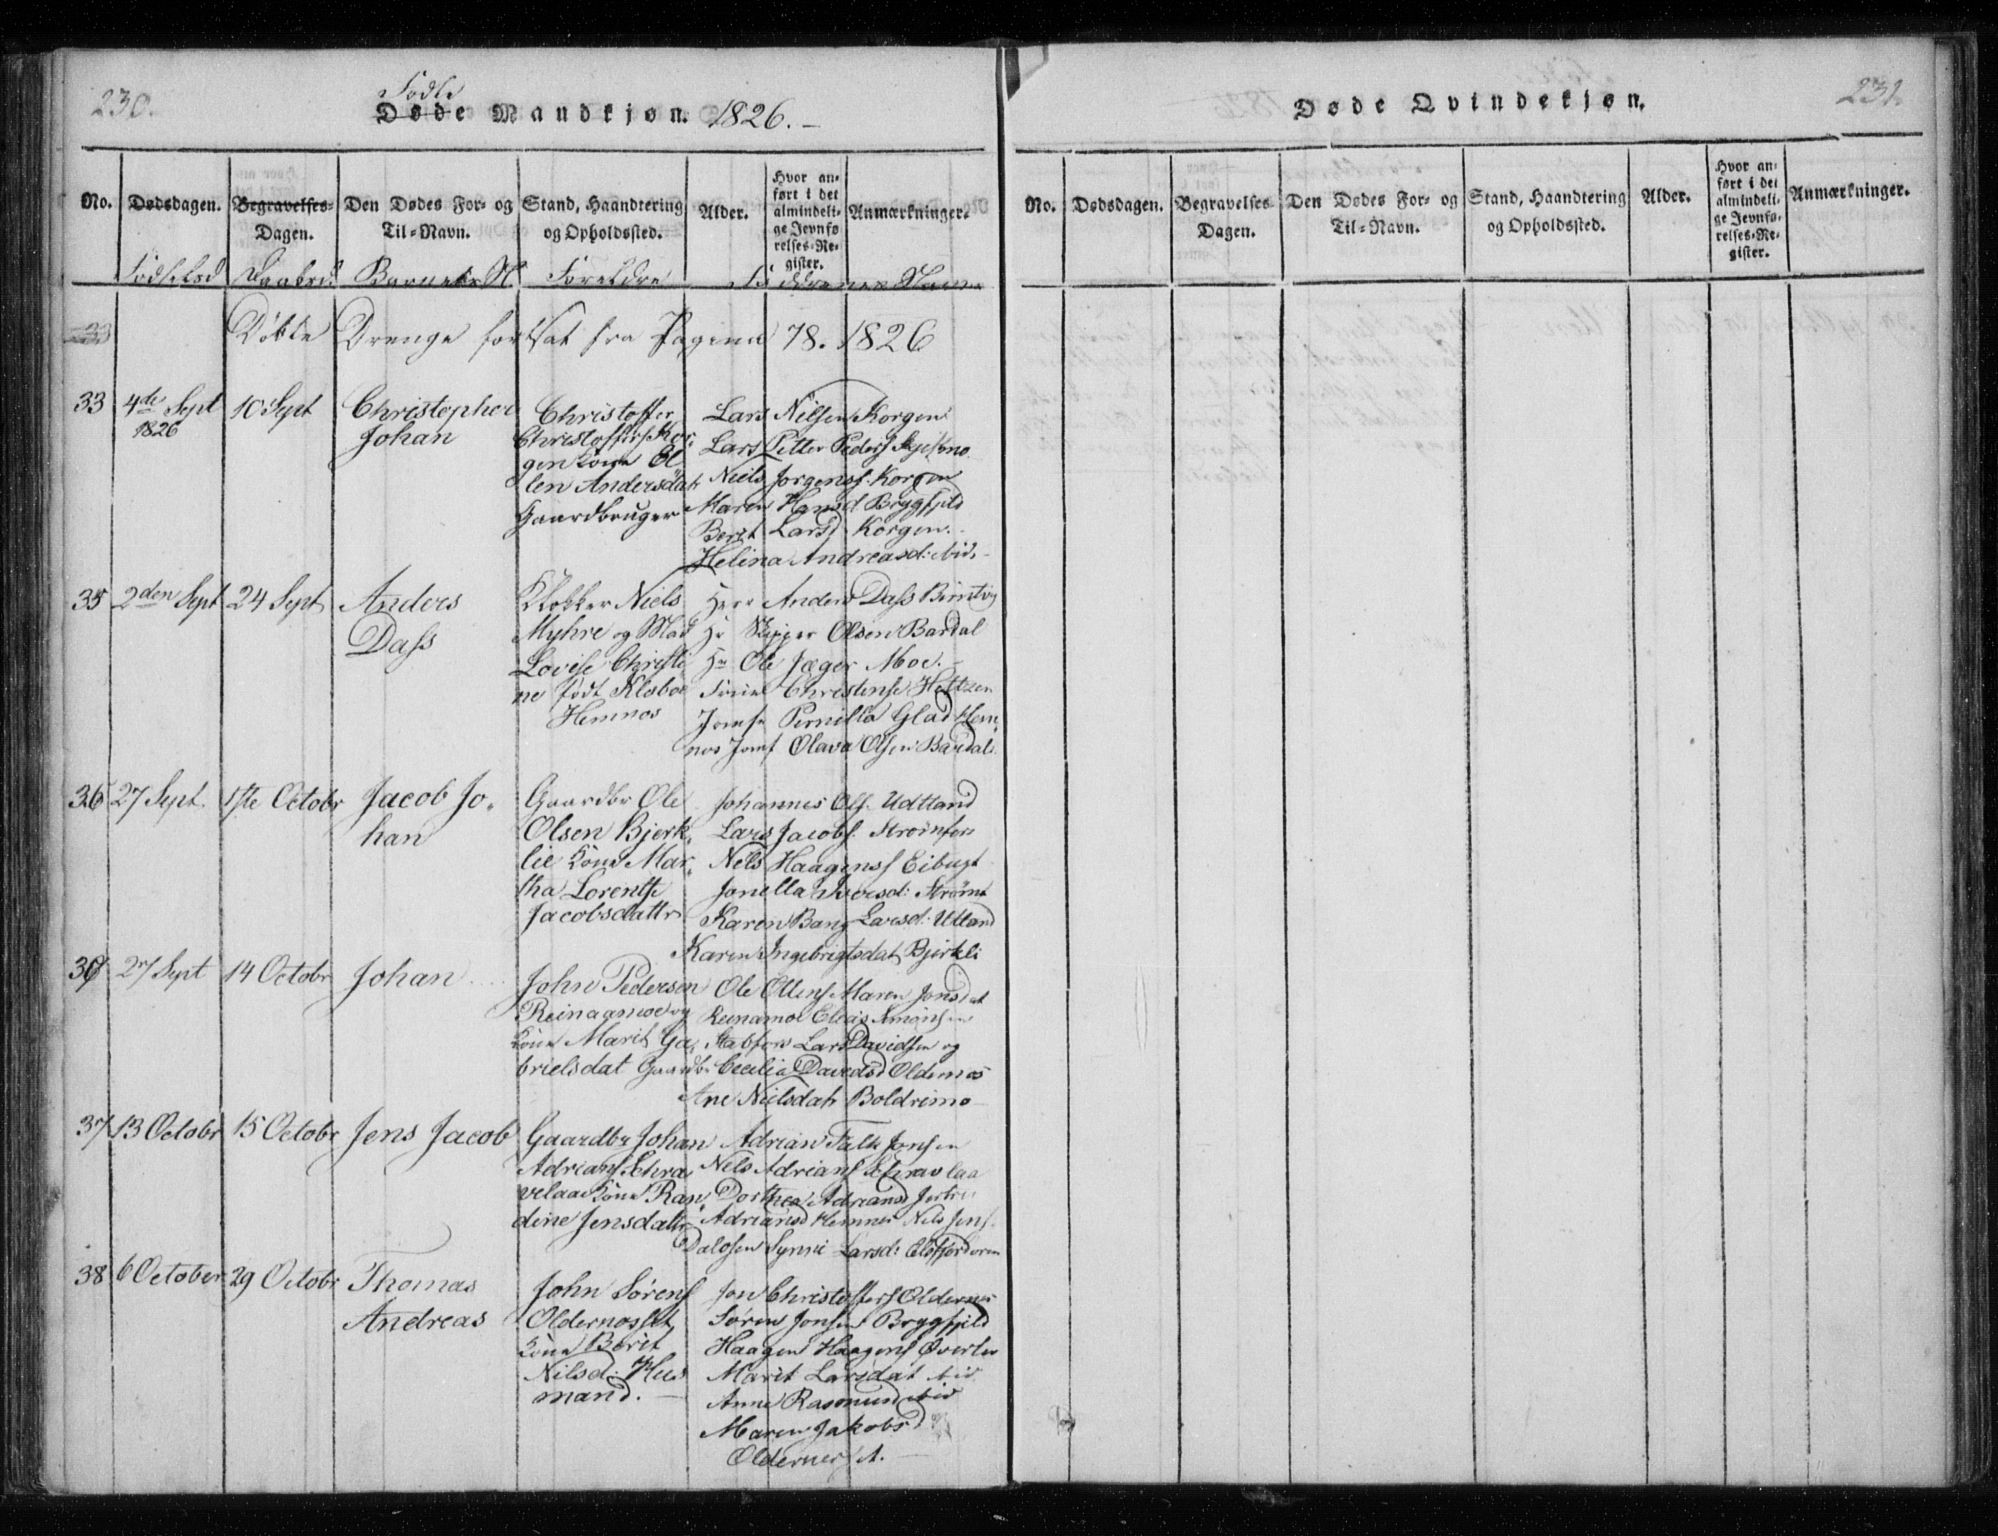 230.
Fødte
Døde Mandkjøn. 1826.
No.
Dødsdagen.
Begravelses-
Dagen.
Den Dødes For- og
Til-Navn.
Stand, Haandtering
og Opholdssted.
Alder.
Hvor an-
ført i det
almindeli-
ge Jevnfø
relses-Re-
gister.
Anmærkninger.
Døbte Drenge fortsat fra Pagina 78. 1826
33
4de Sept
1826
10 Sept
Christopher
Johan
Christoffer
Christoffers Kor-
gen Kone El
len Andersdatr
Gaardbruger
Lars Nilsen Korgen
Lars Petter Peders
Niels Jørgens. Korgen
Maren Hansd Bryggfjeld
Berit Larsd Korgen.
Helina Andreasd: ibid.
35
2den Sept
24 Sept
Anders
Dass
Klokker Niels
Myhre og Mad
Lovise Christi
ne født Klæboe
Hemnes
Herr Anders Dass
Hr Skipper Olsen Bardal
Hr Ole Jæger Moe.
Christense Heltzen
Jomfr Pernilla Glad Hem-
nes Jomf Olava Olsen Bardal.
36
27 Sept.
1ste Octobr
Jacob Jo-
han
Gaardbr Ole
Olsen Bjerk-
lie Kone Mar-
tha Lorentse
Jacobsdattr
Johannes Ols. Udtland
Lars Jacobs.
Nels Haagens Eibugt
Jonella Iversd:
Karen Bang Larsd: Utland
Karen Ingebrigtsdat Bjerkli
27 Sept
14 Octobr
Johan
John Pedersen
Reinaamoe og
Kone Marit Ga-
brielsdat Gaardb:
Ole Ellens Maren Jonsdat
Reinamoe Elias Simonsen
Stabfors Lars Davidsen og
Cecilia Davedsd Oldernæs
Ane Nielsdatr Boldremo
37
13 Octobr
15 Octobr
Jens Jacob
Gaardbr Johan
Adrians
Kone Ran-
dine Jensdattr
Adrian Falk Jonsen
Nels Adrians
Dorthea Adriansd
Adriansd Hemnes Nils Jens
Dalosen Synni Larsd:
38
6 October
29 Octobr
Thomas
Andreas
John Sørens
Oldernesset
Kone Berit
Nilsd: Hus
mand.
Jon Christoffers Oldernes
Søren Jonsen Bryggfjeld
Haagen Haagens Øverlev
Marit Larsdat ibid
Anne Rasmusd ibid
Maren Jakobsd
Oldernesset.
231.
Døde Qvindekjøn.
No.
Dødsdagen.
Begravelses
Dagen.
Den Dødes For- og
Til-Navn.
Stand, Haandtering
og Opholdssted.
Alder.
Hvor an-
ført i det
almindeli-
ge Jevnfø-
relses-Re-
gister.
Anmærkninger.